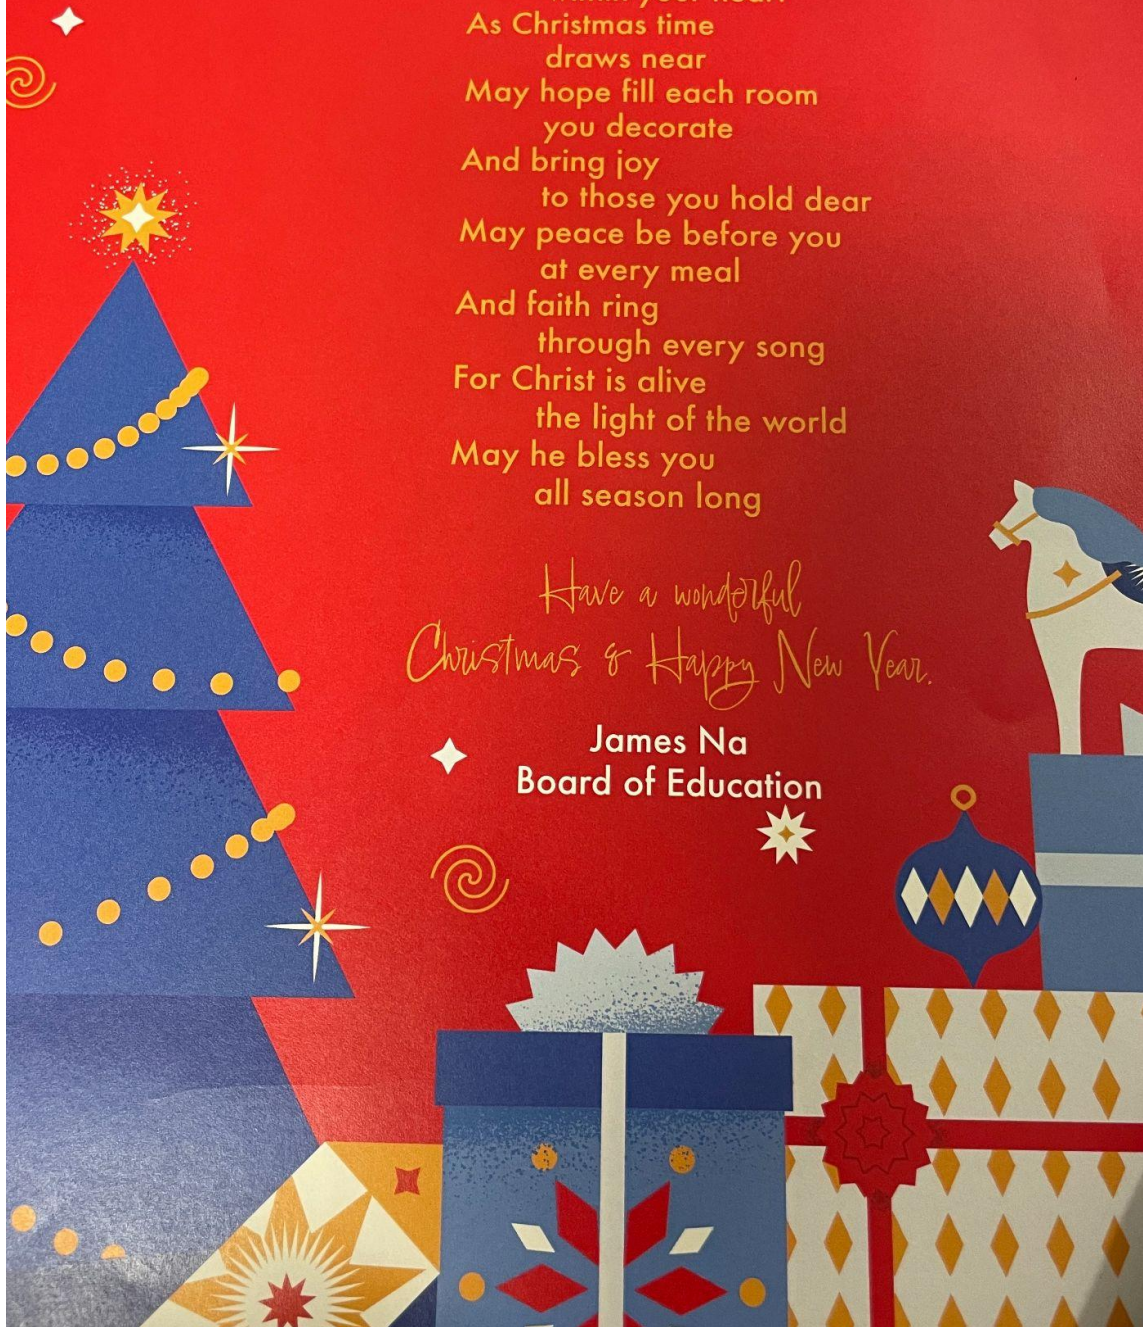 within your heart
As Christmas time
draws near
May hope fill each room
you decorate
And bring joy
to those you hold dear
May peace be before you
at every meal
And faith ring
through every song
For Christ is alive
the light of the world
May he bless you
all season long
Have a wonderful
Christmas & Happy New Year.
James Na
Board of Education